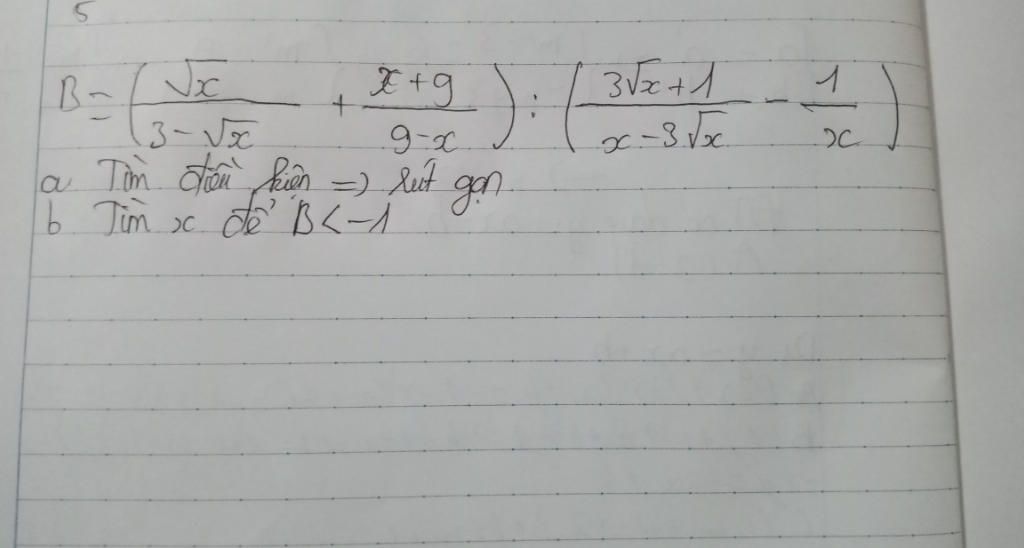 5
B = (√x / (3 - √x) + (x + 9) / (9 - x)) : ((3√x + 1) / (x - 3√x) - 1 / x)
a Tìm điều kiện => rút gọn
b Tìm x để B < -1